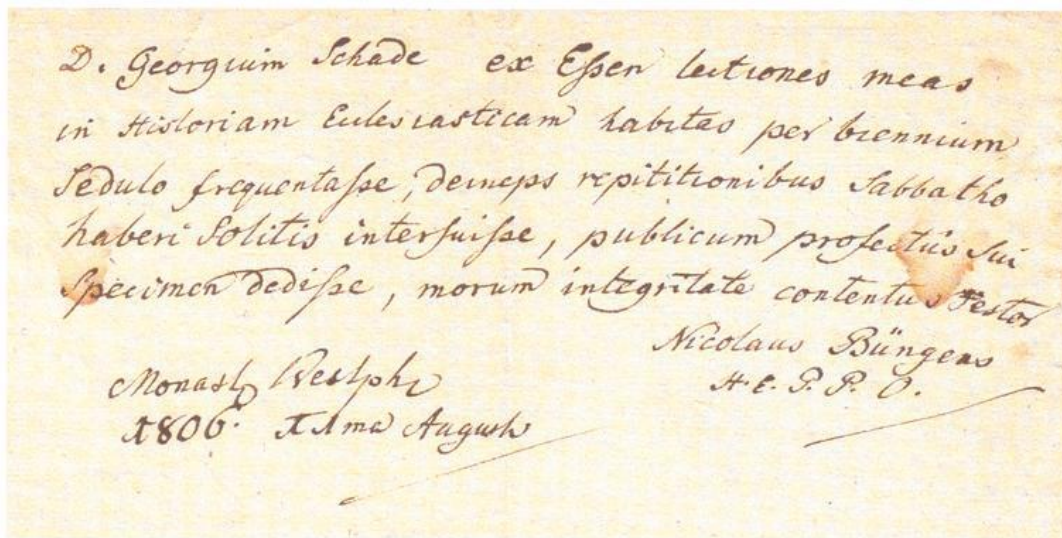 D. Georgium Schade ex Eßen lectiones meas
in Historiam Ecclesiasticam habitas per biennium
Sedulo frequentaße, deinceps repititionibus Sabbatho
haberi Solitis interfuiße, publicum profectus Sui
Specimen dediße, morum integritate contentus Testor
Nicolaus Büngens
H. E. P. P. O.
Monast Westph
1806. August